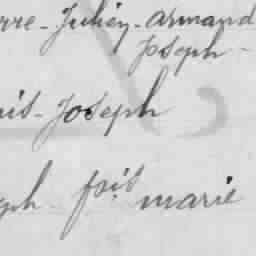 rre-Julien-Armand
Joseph-
uis-Joseph
ph fois marie